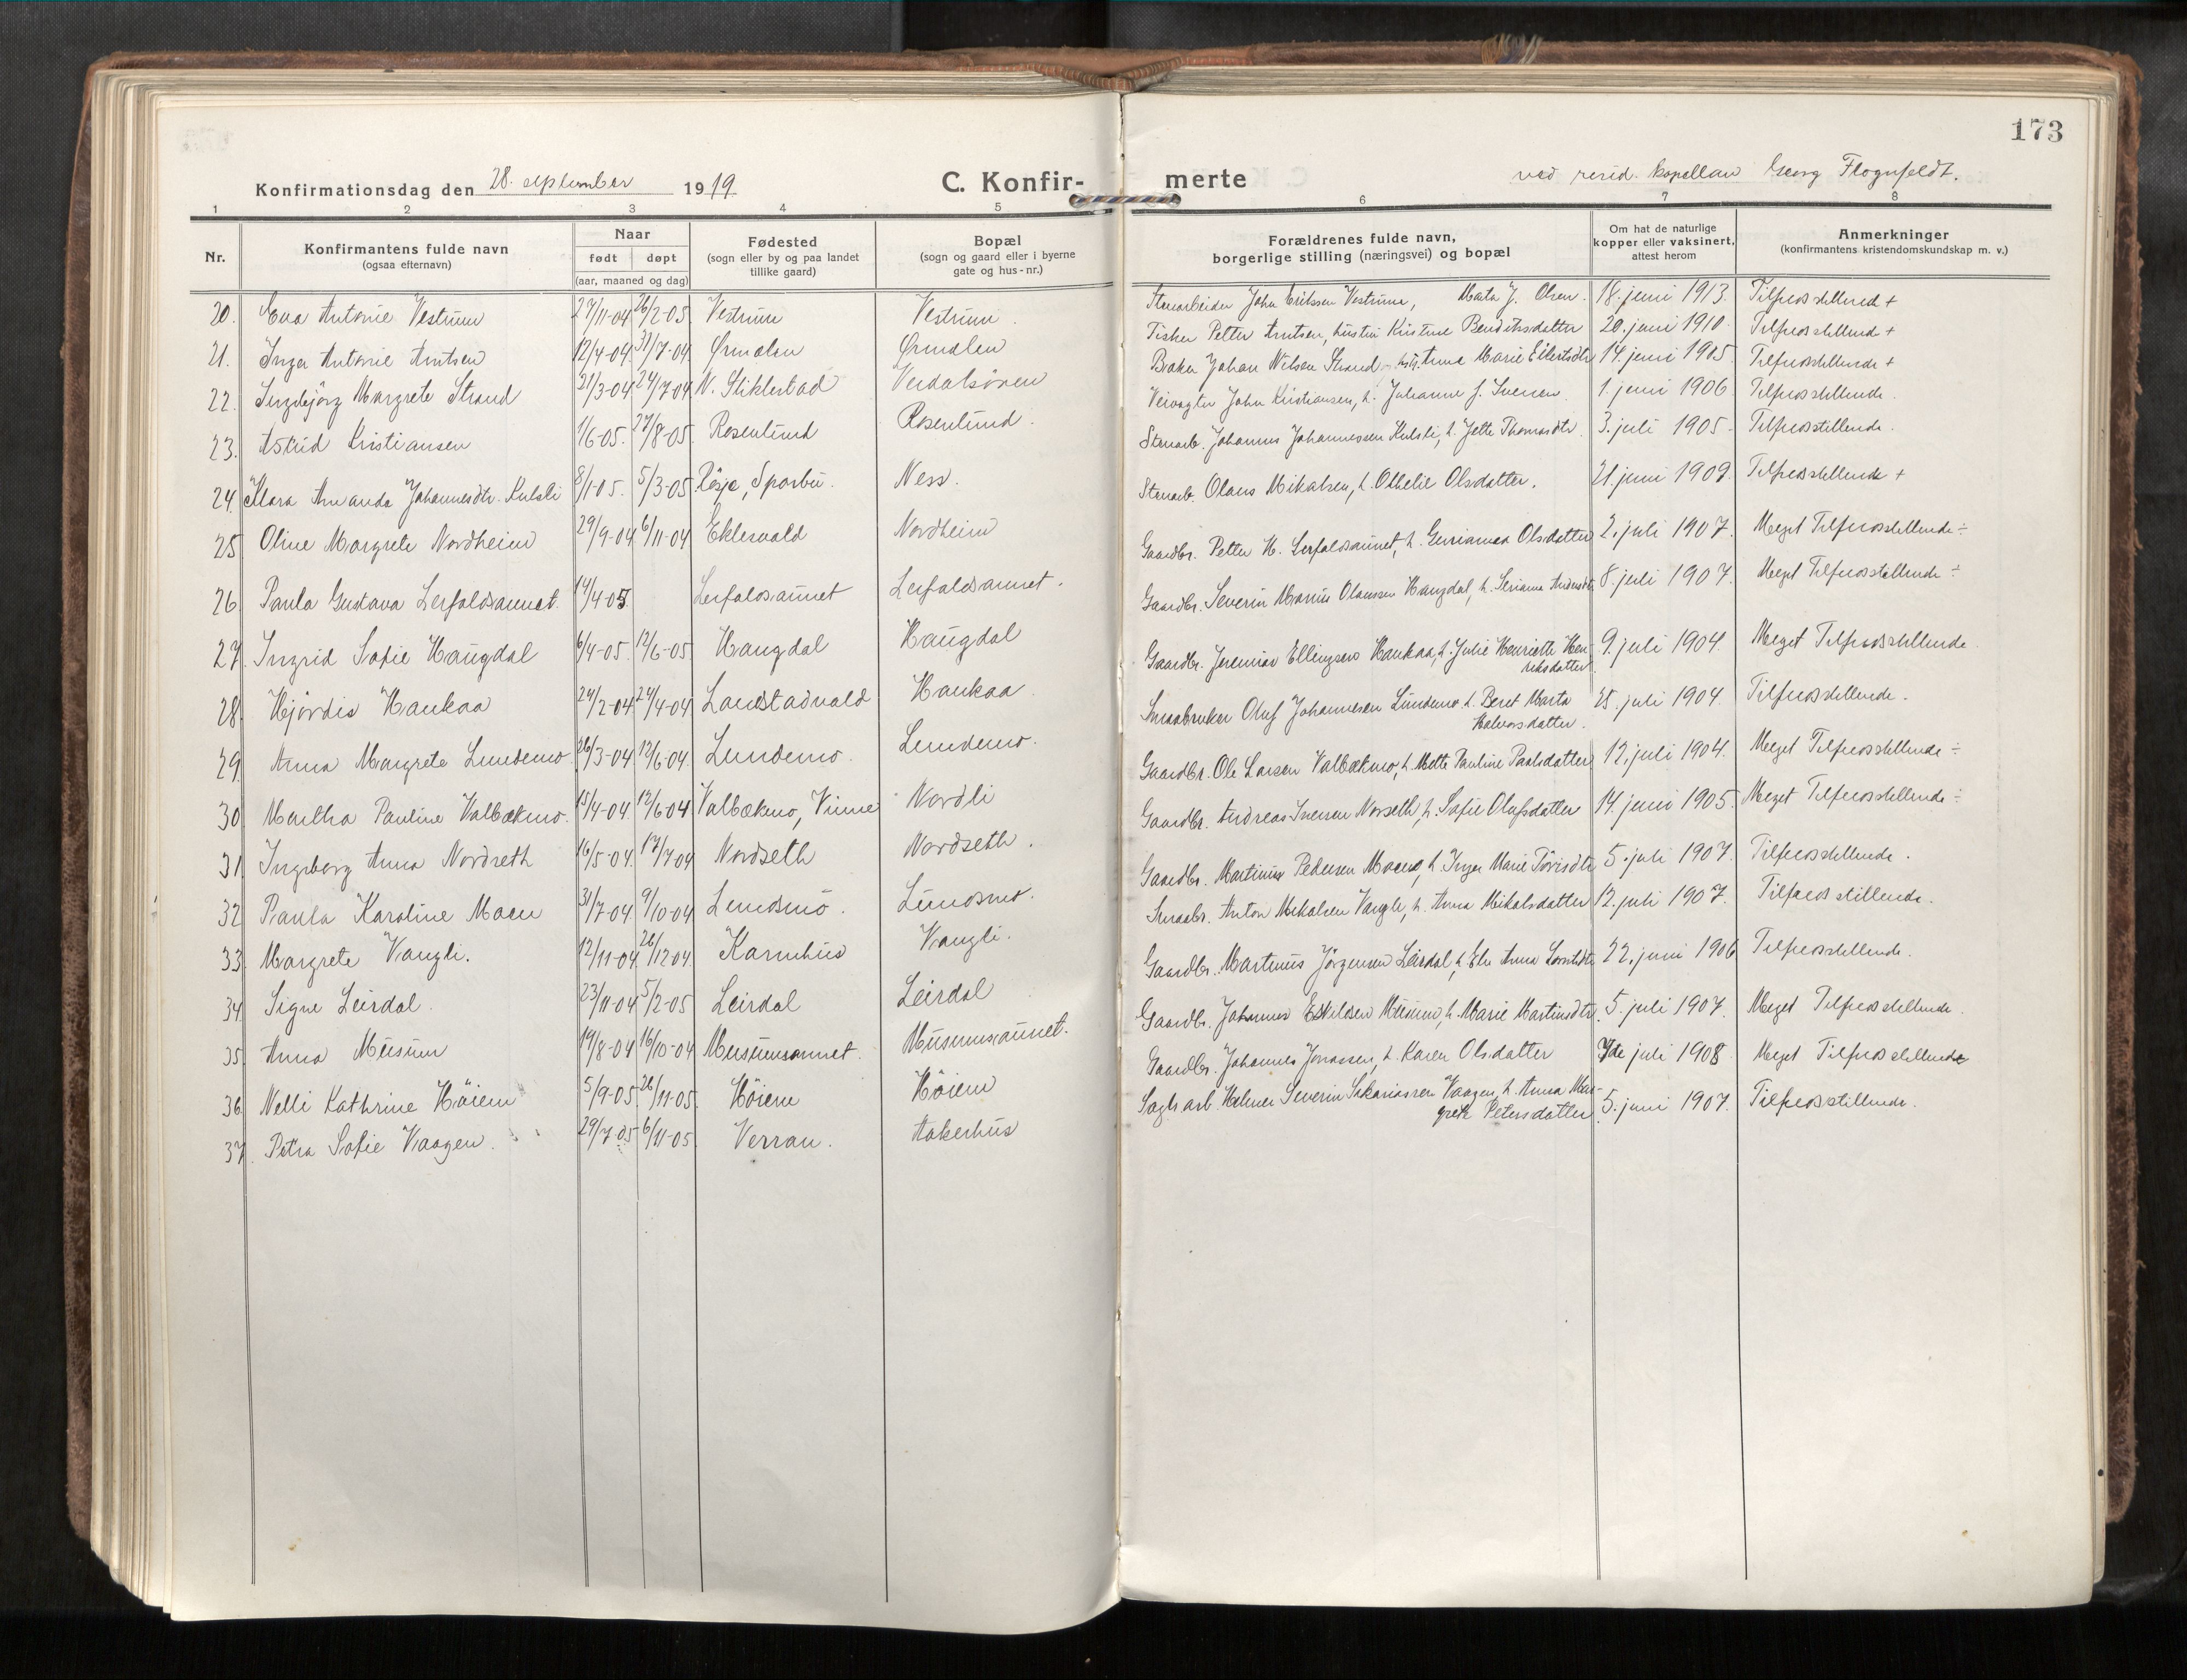 173
Konfirmationsdag den 28. september 1919
C. Konfirmerte
ved resid. kapellan Georg Flognfeldt.
1 2 3 4 5 6 7 8
Nr.
Konfirmantens fulde navn
(ogsaa efternavn)
Naar
født døpt
(aar, maaned og dag)
Fødested
(sogn eller by og paa landet
tillike gaard)
Bopæl
(sogn og gaard eller i byerne
gate og hus-nr.)
Forældrenes fulde navn,
borgerlige stilling (næringsvei) og bopæl
Om hat de naturlige
kopper eller vaksinert,
attest herom
Anmerkninger
(konfirmantens kristendomskundskap m. v.)
20. Eva Antonie Vestrum 27/11-04 26/2-05 Vestrum Vestrum. Stenarbeider John Eriksen Vestrum, Marta J. Olsen. 18. juni 1913. Tilfredsstillend +
21. Inger Antonie Arntsen 12/4-04 31/7-04 Ørmelen Ørmelen Fisker Petter Arntsen, hustru Kristine Bendiksdatter 20. juni 1910. Tilfredsstillend +
22. Ingebjørg Margrete Strand 21/3-04 24/7-04 N. Stiklestad Verdalsøren Baker Johan Nilsen Strand, Anna Marie Eilertsdtr 14. juni 1905 Tilfredsstillende +
23. Astrid Kristiansen 1/6-05. 27/8-05 Rosenlund Rosenlund. Veivogter John Kristiansen, h. Julianne J. Svensen 1. juni 1906 Tilfredsstillende.
24. Klara Amanda Johannesdtr. Kulsli 8/1-05. 5/3-05 Røsje, Sparbu. Ness. Stenarb. Johannes Johannessen Kulsli, h. Jette Thomasdtr. 3. juli 1905. Tilfredsstillende.
25 Oline Margrete Nordheim 29/9-04 6/11-04 Eklesvald Nordheim Stenarb. Olaus Mikalsen, h. Othelie Olsdatter. 21. juni 1909. Tilfredsstillende +
26. Paula Gustava Lerfaldsaunet. 14/4-05 Lerfaldsaunet Lerfaldsaunet. Gaardbr. Petter H. Lerfaldsaunet, h. Olsdatter 2. juli 1907. Meget Tilfredsstillende ÷
27. Ingrid Sofie Haugdal 6/4-05. 12/6-05 Haugdal Haugdal Gaardbr. Severin Marius Olaussen Haugdal, h. 8. juli 1907. Meget Tilfredsstillende ÷
28. Hjördis Haukaa 24/2-04 24/4-04 Landstadvald Haukaa. Gaardbr. Jeremias Ellingsen Haukaa, h. Julie Henriette Hen
riksdatter 9. juli 1904. Meget Tilfredsstillende
29. Anna Margrete Lundemo 26/3-04 12/6-04. Lundemo. Lundemo. Smaabruker Oluf Johannesen Lundemo h. Beret Marta
Halvorsdatter. 25. juli 1904. Tilfredsstillende.
30 Martha Pauline Valbækmo. 15/4-04. 12/6 04 Valbækmo, Vinne Nordli Gaardbr. Ole Larsen Valbækmo, h. Mette Pauline Paalsdatter 12. juli 1904. Meget Tilfredsstillende ÷
31. Ingeborg Anna Nordseth 16/5-04. 17/7 04 Nordseth Nordseth. Gaardbr. Andreas Iversen Norseth, h. Sofie Olufsdatter 14. juni 1905. Meget Tilfredsstillende ÷
32 Paula Karoline Moen 31/7-04 9/10-04 Lundsmo. Lundsmo. Gaardbr. Martinus Pedersen Moen, h. Inger Marie 5. juli 1907. Tilfredsstillende.
33. Margrete Vangli. 12/11-04 26/12 04 Karmhus Vangli. Smaabr. Anton Mikalsen Vangli, h. Anna Mikalsdatter 12. juli 1907. Tilfredsstillende.
34 Signe Leirdal. 23/11-04 5/2-05 Leirdal Leirdal Gaardbr. Martinus Jörgensen Leirdal, h. Anna 22. juni 1906 Tilfredsstillende.
35. Anna Musum 19/8-04 16/10-04 Musumsaunet. Musumsaunet. Gaardbr. Johannes Eskildsen Musum, h. Marie Martinsdtr. 5. juli 1907. Meget Tilfredsstillende.
36. Nelli Kathrine Höiem 5/9-05. 26/11-05 Höiem Höiem Gaardbr. Johannes Jonassen, h. Karen Olsdatter 7de juli 1908 Meget Tilfredsstillende
37. Petra Sofie Vaagen. 29/7 05 6/11-05 Verran. Aakerhus Sagbr. arb. Helmer Severin Sakariassen Vaagen, h. Anna Mar-
grete Petersdatter 5. juni 1907. Tilfredsstillende.